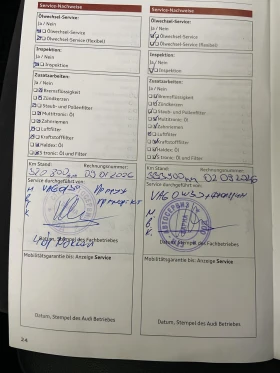 Service-Nachweise
Ölwechsel-Service:
Ja / Nein
Ölwechsel-Service
Ölwechsel-Service (flexibel)
Inspektion:
Ja / Nein
Inspektion
Zusatzarbeiten:
Ja / Nein
Bremsflüssigkeit
Zündkerzen
Staub- und Pollenfilter
Multitronic: Öl
Zahnriemen
Luftfilter
Kraftstofffilter
Haldex: Öl
S-tronic: Öl und Filter
Km Stand: Rechnungsnummer:
Service durchgeführt von:
Datum, Stempel des Fachbetriebes
Mobilitätsgarantie bis: Anzeige Service
Datum, Stempel des Audi Betriebes
Service-Nachweise
Ölwechsel-Service:
Ja / Nein
Ölwechsel-Service
Ölwechsel-Service (flexibel)
Inspektion:
Ja / Nein
Inspektion
Zusatzarbeiten:
Ja / Nein
Bremsflüssigkeit
Zündkerzen
Staub- und Pollenfilter
Multitronic: Öl
Zahnriemen
Luftfilter
Kraftstofffilter
Haldex: Öl
S-tronic: Öl und Filter
Km Stand: Rechnungsnummer:
Service durchgeführt von:
Datum, Stempel des Fachbetriebes
Mobilitätsgarantie bis: Anzeige Service
Datum, Stempel des Audi Betriebes